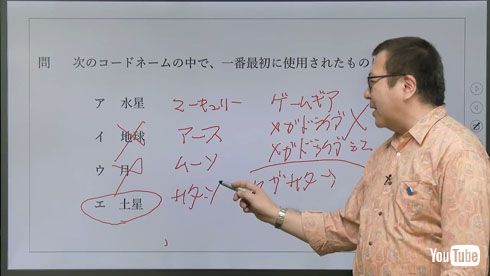 問 次のコードネームの中で、一番最初に使用されたもの
ア 水星 マーキュリー ゲームギア
イ 地球 アース メガドライブ
ウ 月 ムーン メガドライブ
エ 土星 サターン セガサターン
YouTube